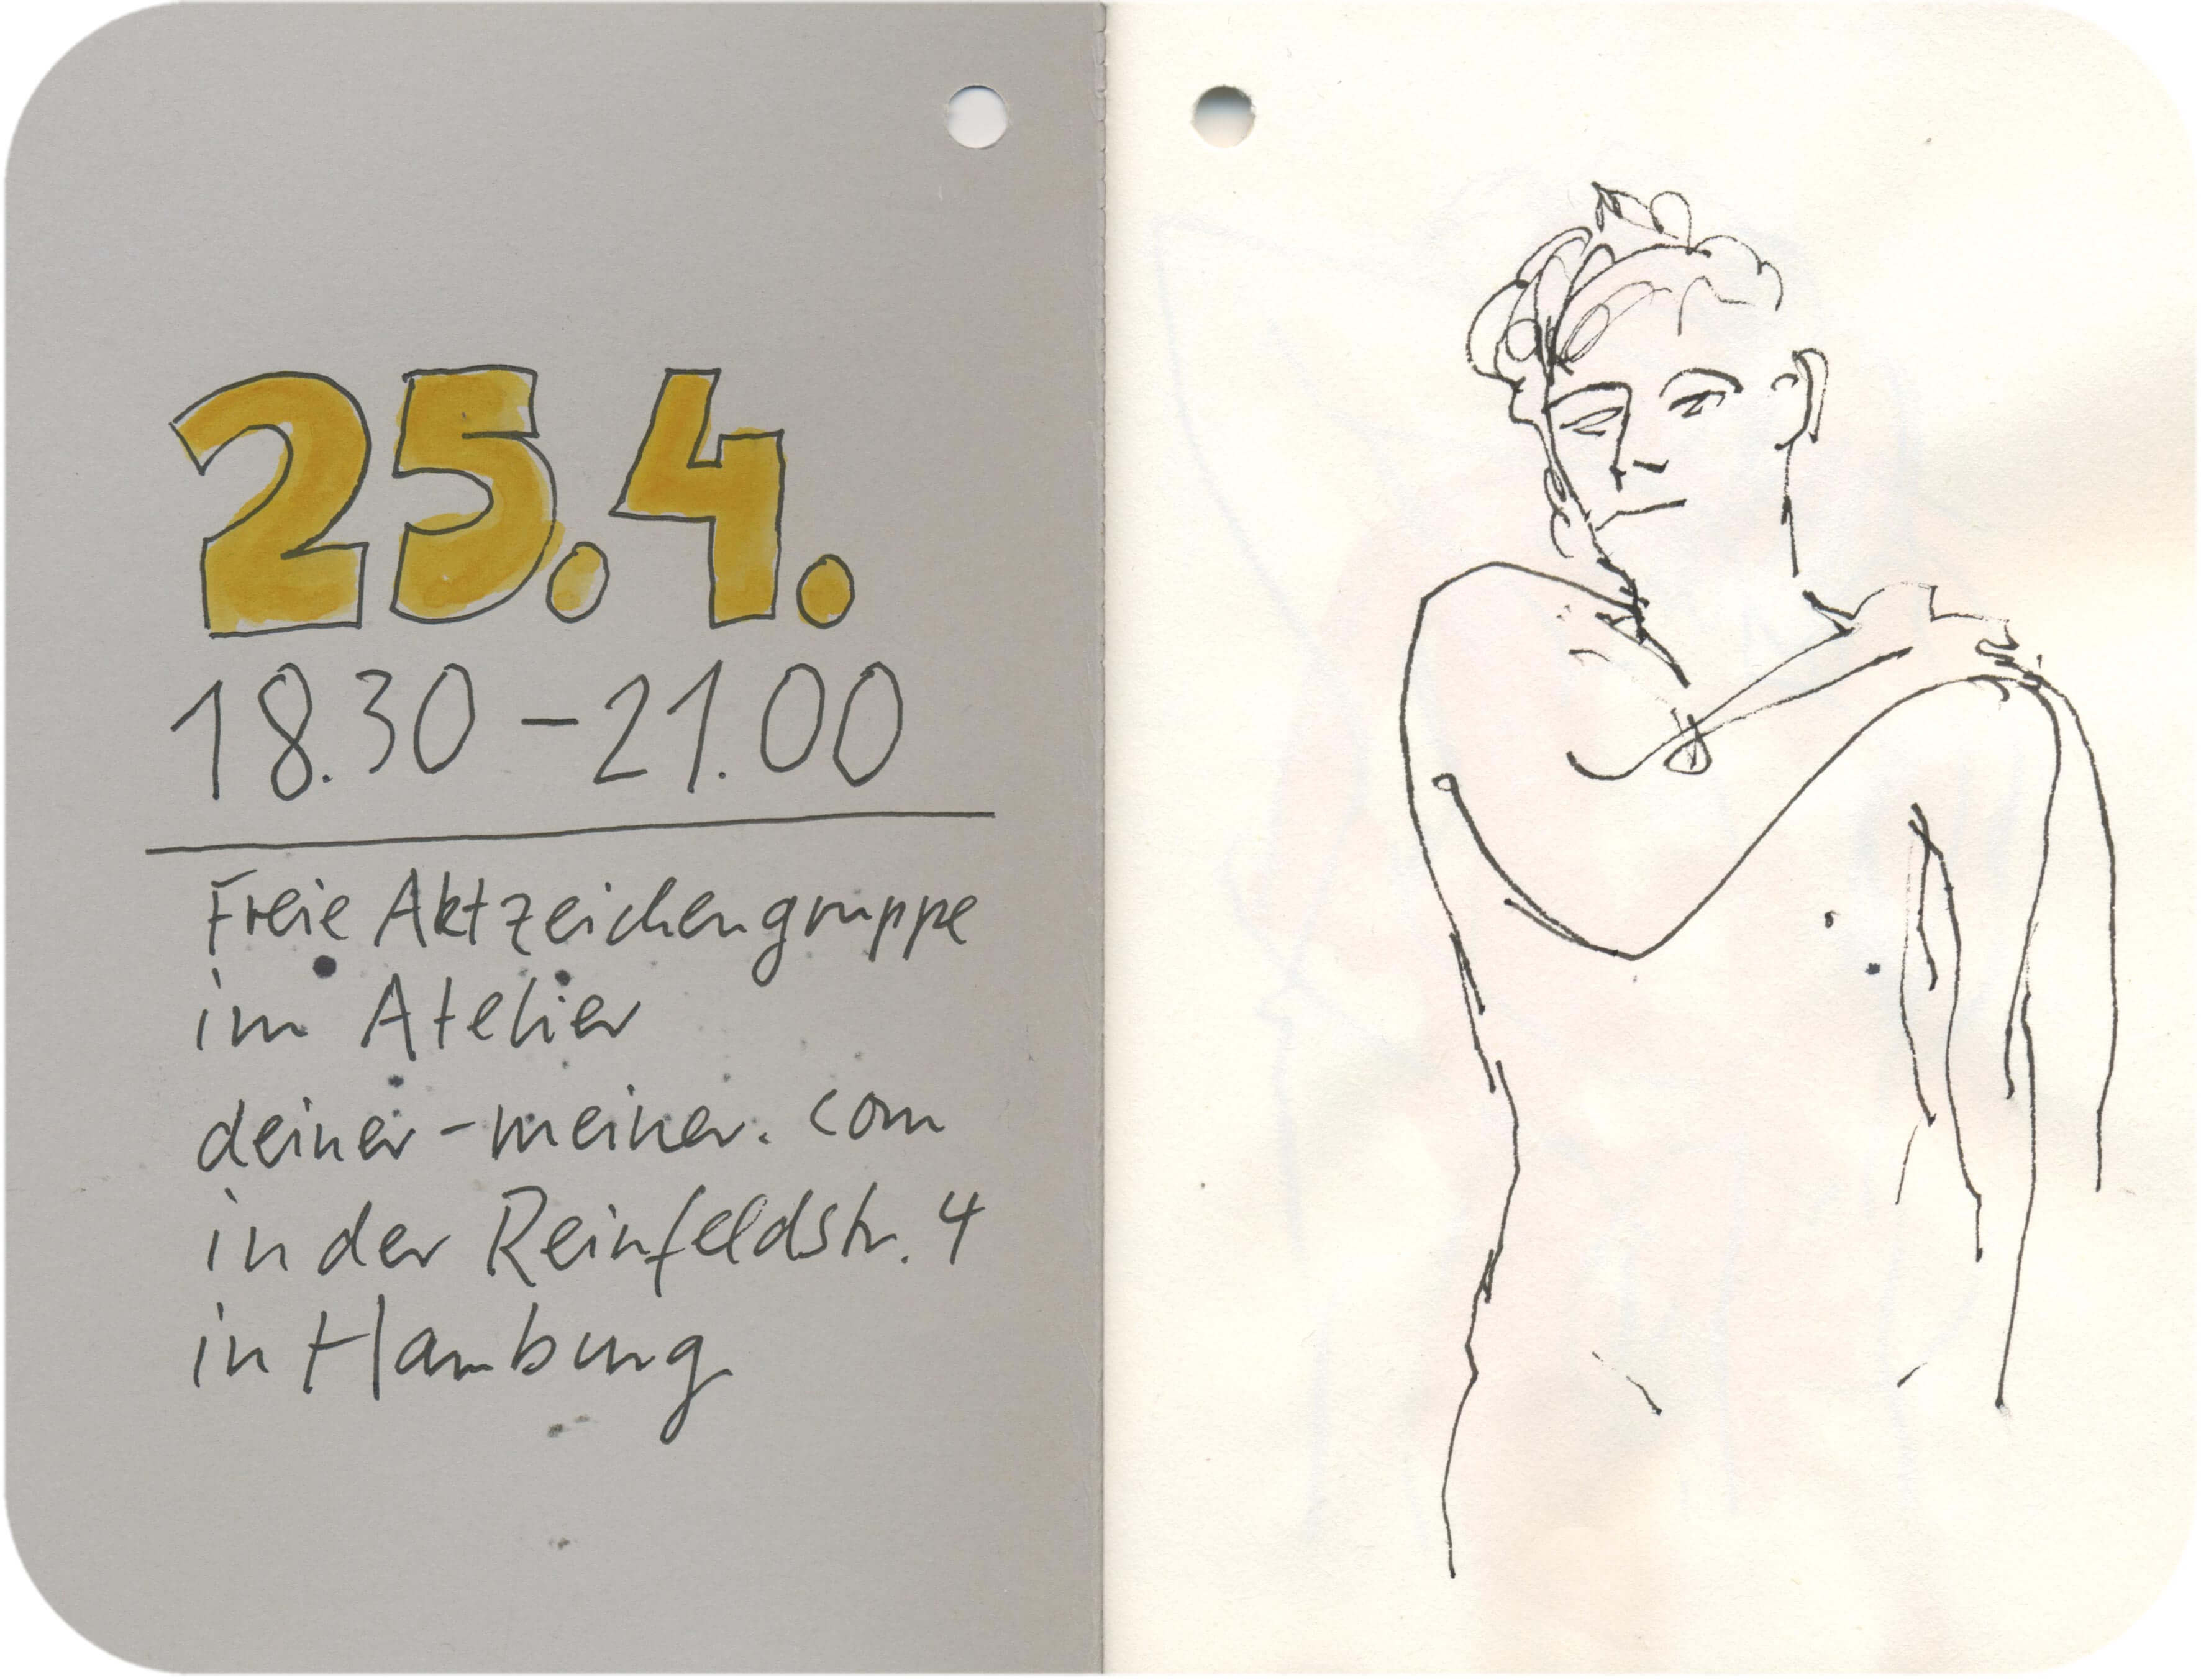 25.4.
18.30 – 21.00
Freie Aktzeichengruppe
im Atelier
deiner-meiner.com
in der Reinfeldstr. 4
in Hamburg